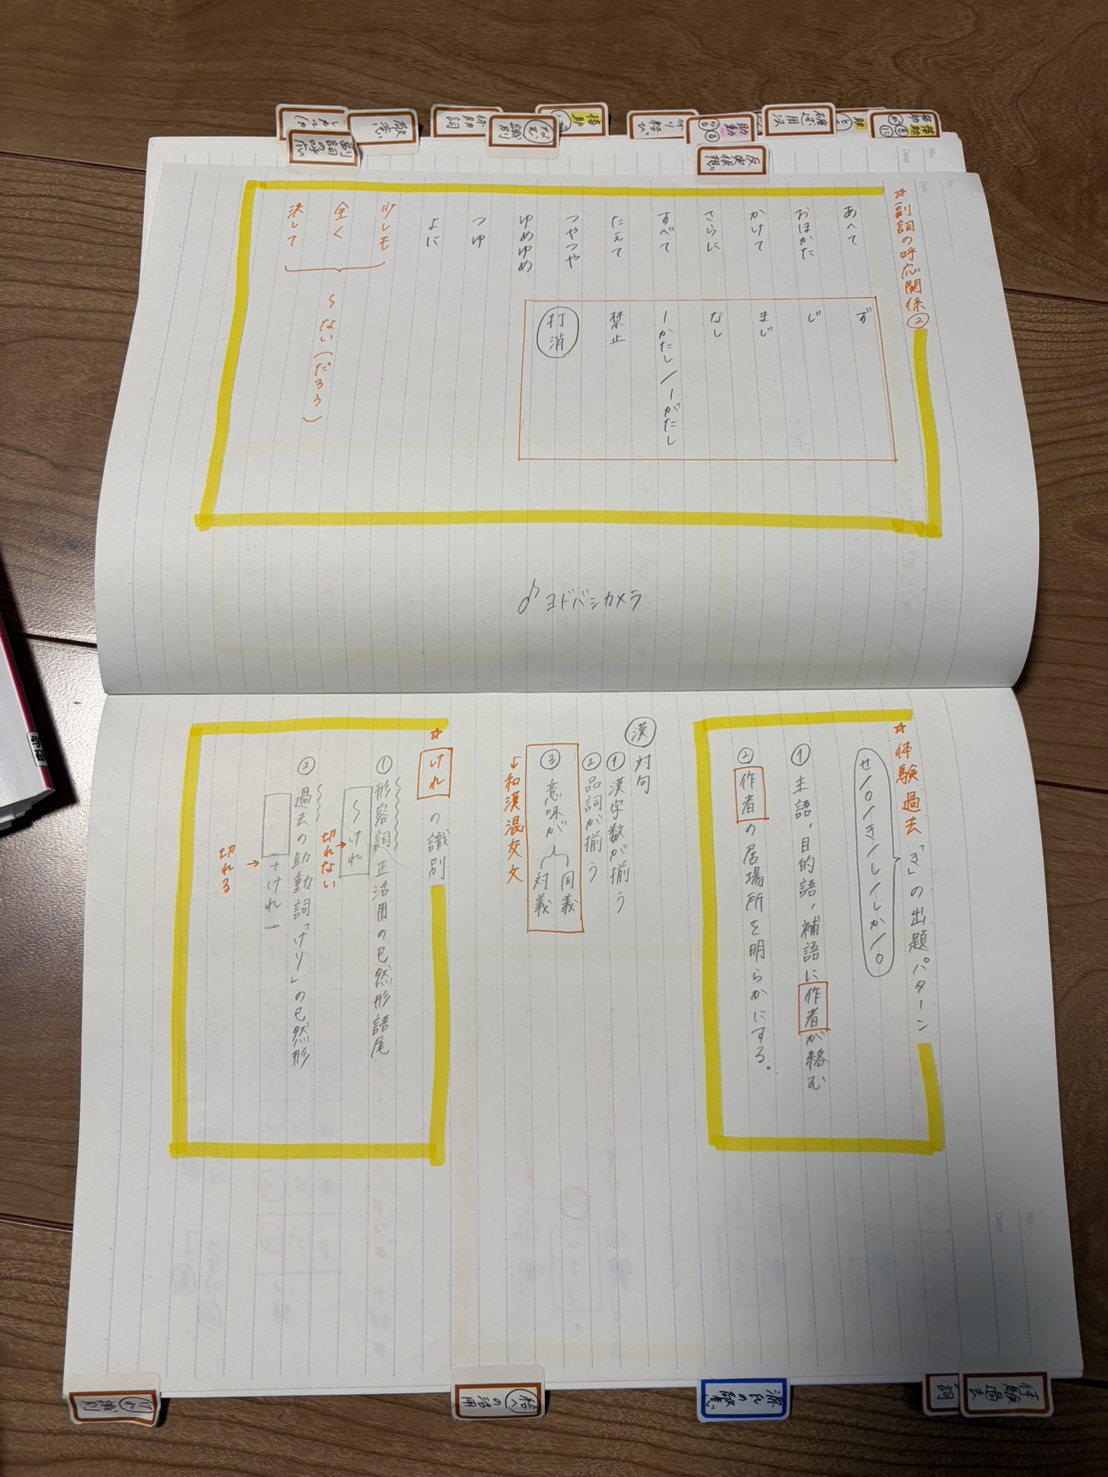 ☆副詞の呼応関係②
あへて
おほかた
かけて
さらに
すべて
たえて
つやつや
ゆめゆめ
つゆ
よに
ず
じ
まじ
なし
ーかたし/ーがたし
禁止
打消
少しも
全く
決して
〜ない(だろう)
♪ヨドバシカメラ
☆体験過去「き」の出題パターン
せ/○/き/し/しか/○
①主語,目的語,補語に作者が絡む
②作者の居場所を明らかにする。
漢 対句
①漢字数が揃う
②品詞が揃う
③意味が
同義
対義
↓和漢混交文
☆けれの識別
①形容詞 正活用の已然形語尾
〜けれ
切れない
②過去の助動詞「けり」の已然形
+けれー
切れる
敬意
反実仮想
体験過去